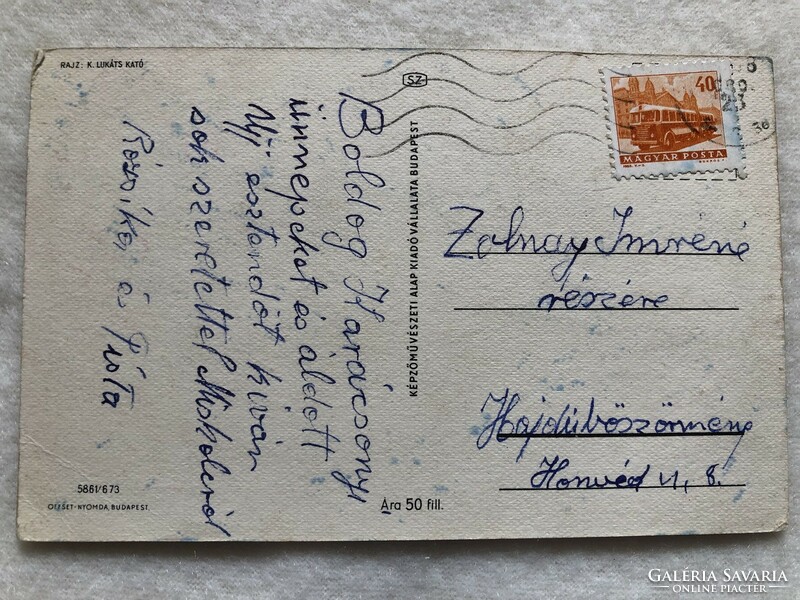 RAJZ: K. LUKÁTS KATÓ
SZ
Boldog Karácsonyi
ünnepeket és áldott
Új esztendőt kíván
sok szeretettel Miskolcról
Rózsika és Pista
KÉPZŐMŰVÉSZETI ALAP KIADÓVÁLLALATA BUDAPEST
40
MAGYAR POSTA
Zolnay Imréné
részére
Hajdúböszörmény
Honvéd u, 8.
5861/673
OFFSET-NYOMDA, BUDAPEST
Ára 50 fill.
GALÉRIA SAVARIA
ONLINE PIACTÉR